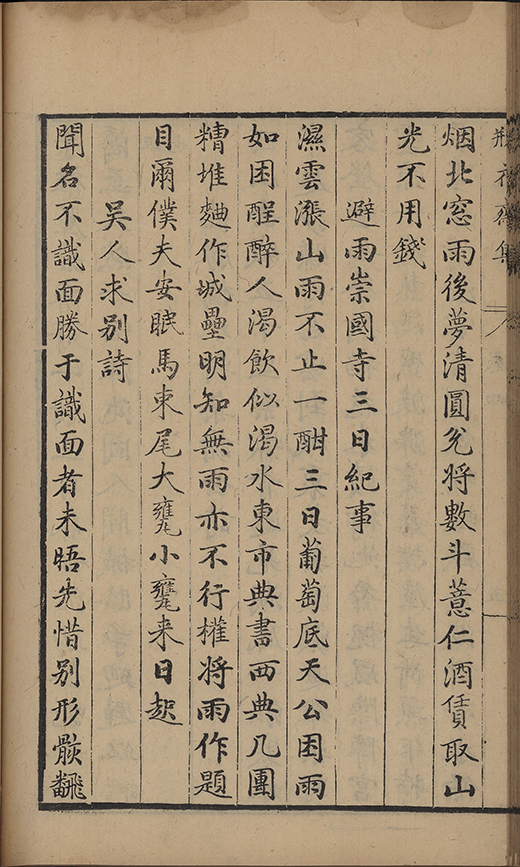 瓶花齋集
烟北窓雨後夢清圓兊將數斗薏仁酒賃取山
光不用錢
避雨崇國寺三日紀事
濕雲漲山雨不止一酣三日葡萄底天公困雨
如困酲醉人渴飲似渴水東市典書西典几團
糟堆麯作城壘明知無雨亦不行權將雨作題
目爾僕夫安眠馬束尾大甕小甕来日起
吴人求别詩
聞名不識面勝于識面者未晤先惜别形骸翻